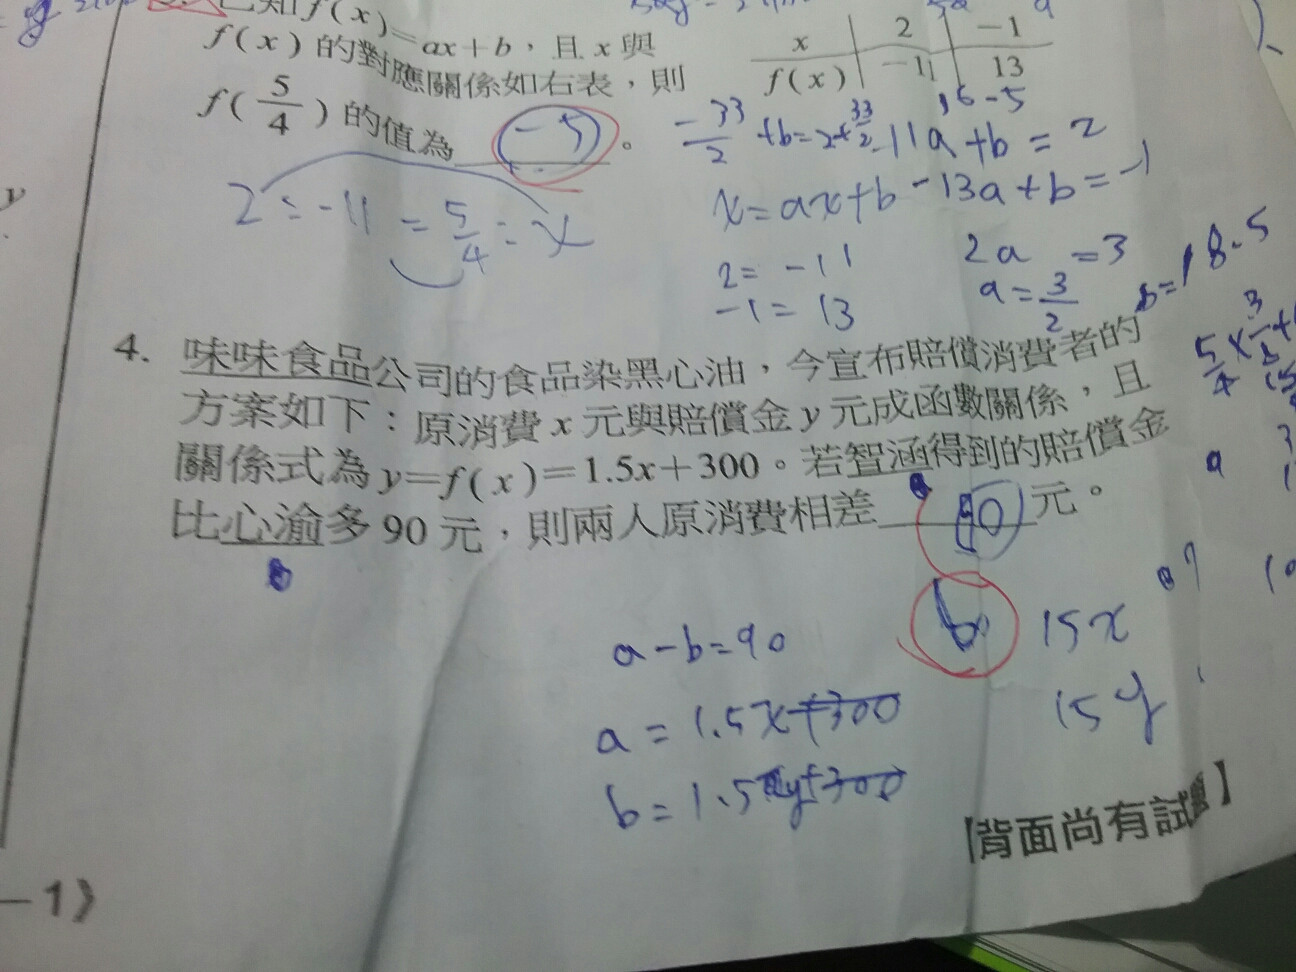 已知f(x)=ax+b，且x與
f(x)的對應關係如右表，則
f(5/4)的值為 -5 。
x 2 -1
f(x) -11 13
-33/2 +b=2+33/2
-11a+b=2
x=ax+b -13a+b=-1
2:-11=5/4:x
2=-11 2a=3
-1=13 a=3/2 b=18.5
4. 味味食品公司的食品染黑心油，今宣布賠償消費者的
方案如下：原消費x元與賠償金y元成函數關係，且
關係式為y=f(x)=1.5x+300。若智涵得到的賠償金
比心渝多90元，則兩人原消費相差 元。
b
a-b=90 15x
a=1.5x+300 15y
b=1.5y+300
【背面尚有試題】
-1》